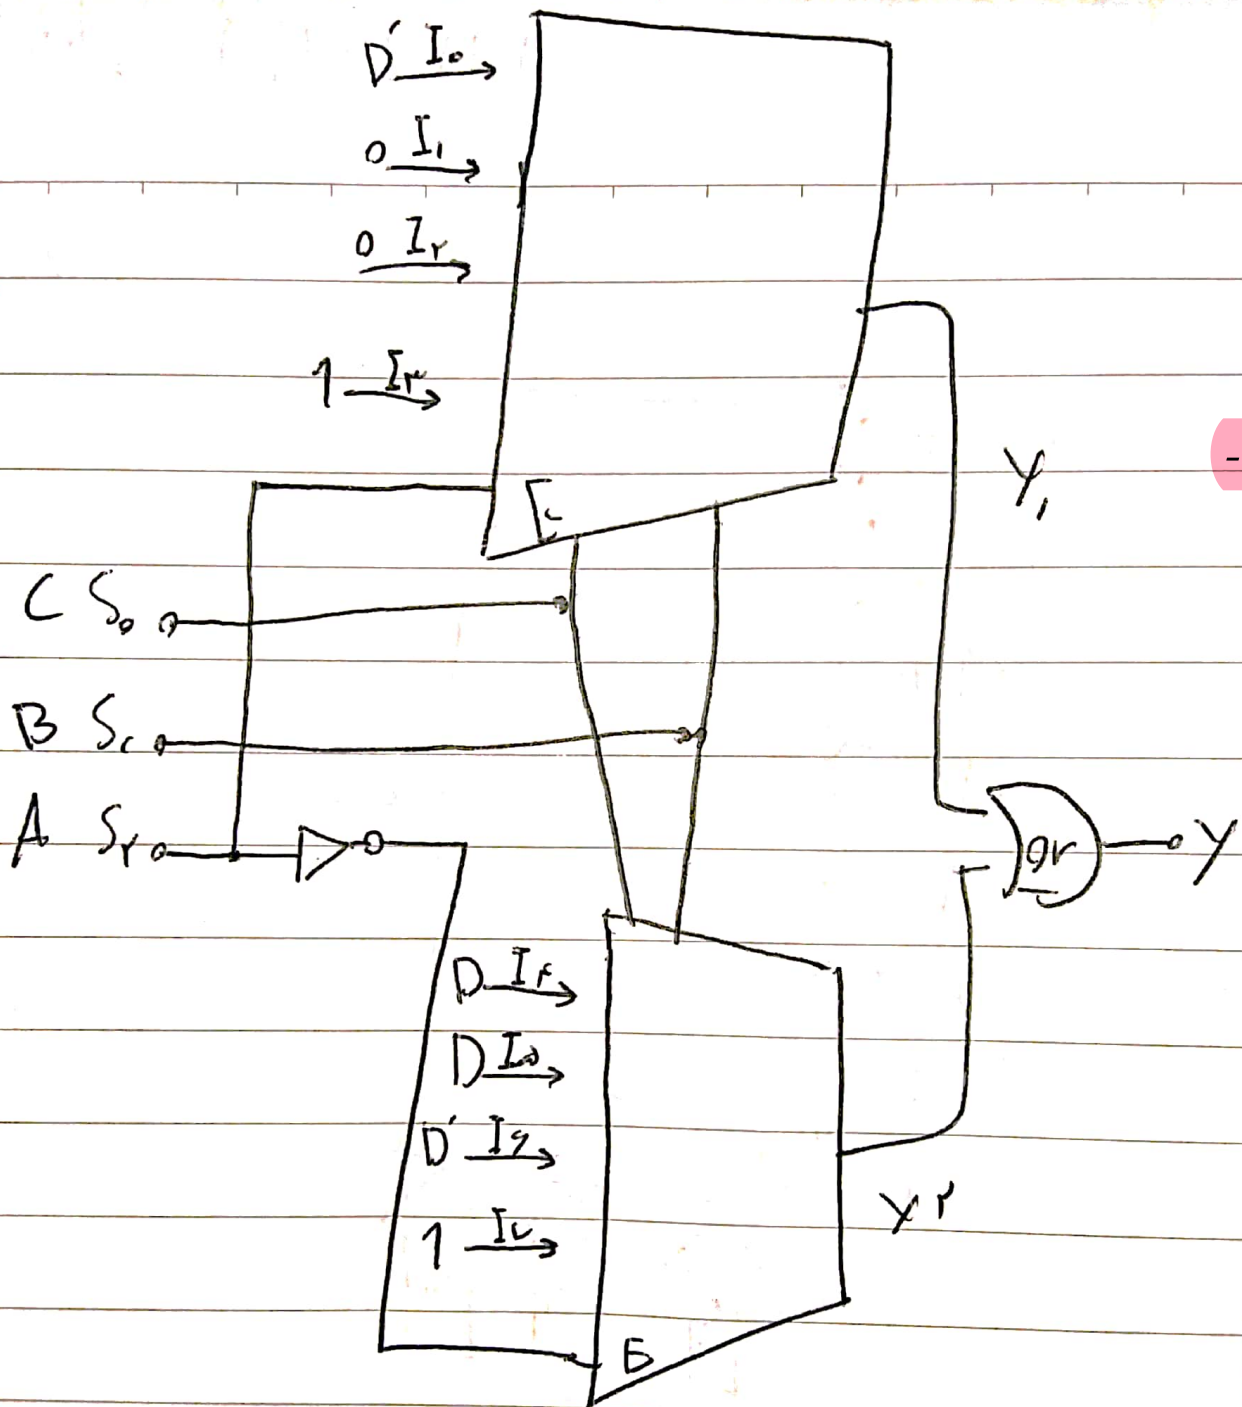 D' I₀
0 I₁
0 I₂
1 I۳
E
Y₁
-
C S₀
B S₁
A S۲
or
Y
D I۴
D I۵
D' I۶
1 I۷
Y۲
E